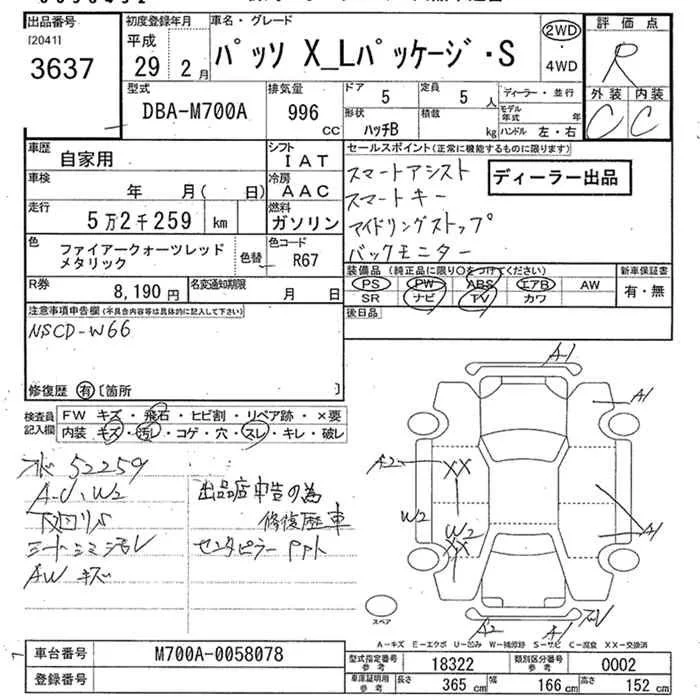 出品番号
[2041]
3637
初度登録年月
平成
29年2月
車名・グレード
パッソ X_Lパッケージ・S
2WD
・
4WD
評価点
R
外装 内装
C C
型式
DBA-M700A
排気量
996
CC
ドア 5
定員 5人
形状 ハッチB
積載 kg
ディーラー・並行
モデル年式 年
ハンドル 左・右
車歴
自家用
シフト
IAT
車検
年 月( 日)
冷房
AAC
走行
5万2千259 km
燃料
ガソリン
色
ファイアークォーツレッド
メタリック
色替
色コード
R67
R券
8,190円
名変通知期限
月 日
セールスポイント(正常に機能するものに限ります)
スマートアシスト
スマートキー
アイドリングストップ
バックモニター
ディーラー出品
装備品(純正品に限り○をつけてください)
PS PW ABS エアB AW
SR ナビ TV カワ
新車保証書
有・無
後日品
注意事項申告欄(不具合内容等は具体的に記入して下さい)
NSCD-W66
修復歴 有[箇所 ]
検査員
記入欄
FW キズ・飛石・ヒビ割・リペア跡・×要
内装 キズ・汚レ・コゲ・穴・スレ・キレ・破レ
52259
A-U, W2
下回リS
シートシミ汚レ
AW キズ
出品店申告の為
修復歴車
センタピラー
A-1
A1
A2
XX
W2
W2
XX
A1
A2
A-1
スペア
A-キズ E-エクボ U-凹み W-補修跡 S-サビ C-腐食 XX-交換済
車台番号
M700A-0058078
登録番号
型式指定番号
参考
18322
類別区分番号
参考
0002
車庫証明用
参考
長さ 365 cm
幅 166 cm
高さ 152 cm